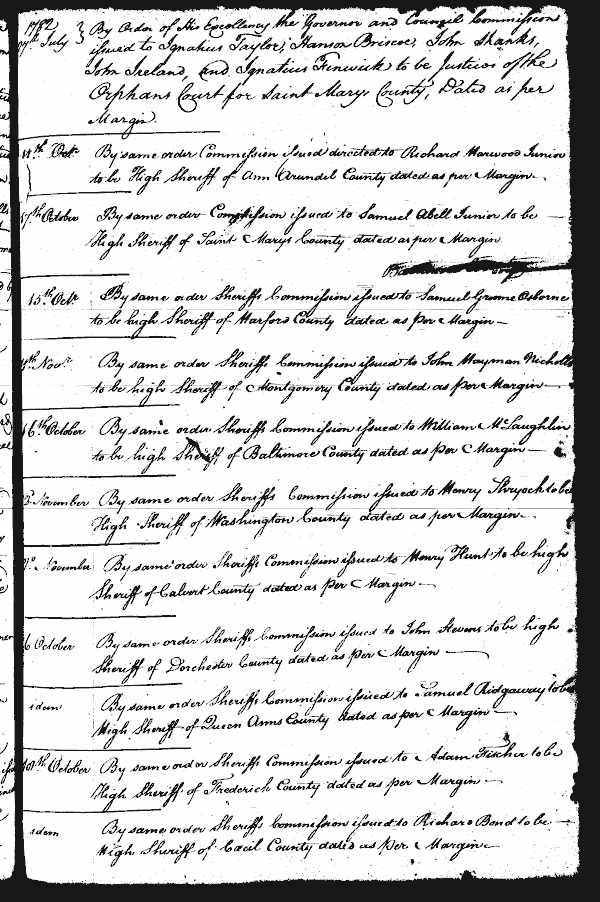 1782
By Order of His Excellency the Governor and Council Commission
July } issued to Ignatius Taylor, Hanson Briscoe, John Shanks,
John Ireland, and Ignatius Fenwick to be Justices of the
Orphans Court for Saint Marys County, Dated as per
Margin.
11th Octr By same order Commission issued directed to Richard Harwood Junior
to be High Sheriff of Ann Arundel County dated as per Margin.
17th October By same order Commission issued to Samuel Abell Junior to be
High Sheriff of Saint Marys County dated as per Margin
15th Octr By same order Sheriffs Commission issued to Samuel Groome Osborne
to be high Sheriff of Harford County dated as per Margin
Novr By same order Sheriffs Commission issued to John Hayman Nicholls
to be high Sheriff of Montgomery County dated as per Margin
16th October By same order Sheriffs Commission issued to William McLaughlin
to be high Sheriff of Baltimore County dated as per Margin
November By same order Sheriffs Commission issued to Henry Shryock to be
High Sheriff of Washington County dated as per Margin.
November By same order Sheriffs Commission issued to Henry Hunt to be high
Sheriff of Calvert County dated as per Margin
October By same order Sheriffs Commission issued to John Stevens to be high
Sheriff of Dorchester County dated as per Margin
idem By same order Sheriffs Commission issued to Samuel Ridgaway to be
High Sheriff of Queen Anns County dated as per Margin
October By same order Sheriffs Commission issued to Adam Fischer to be
High Sheriff of Frederick County dated as per Margin
idem By same order Sheriffs Commission issued to Richard Bond to be
High Sheriff of Cecil County dated as per Margin